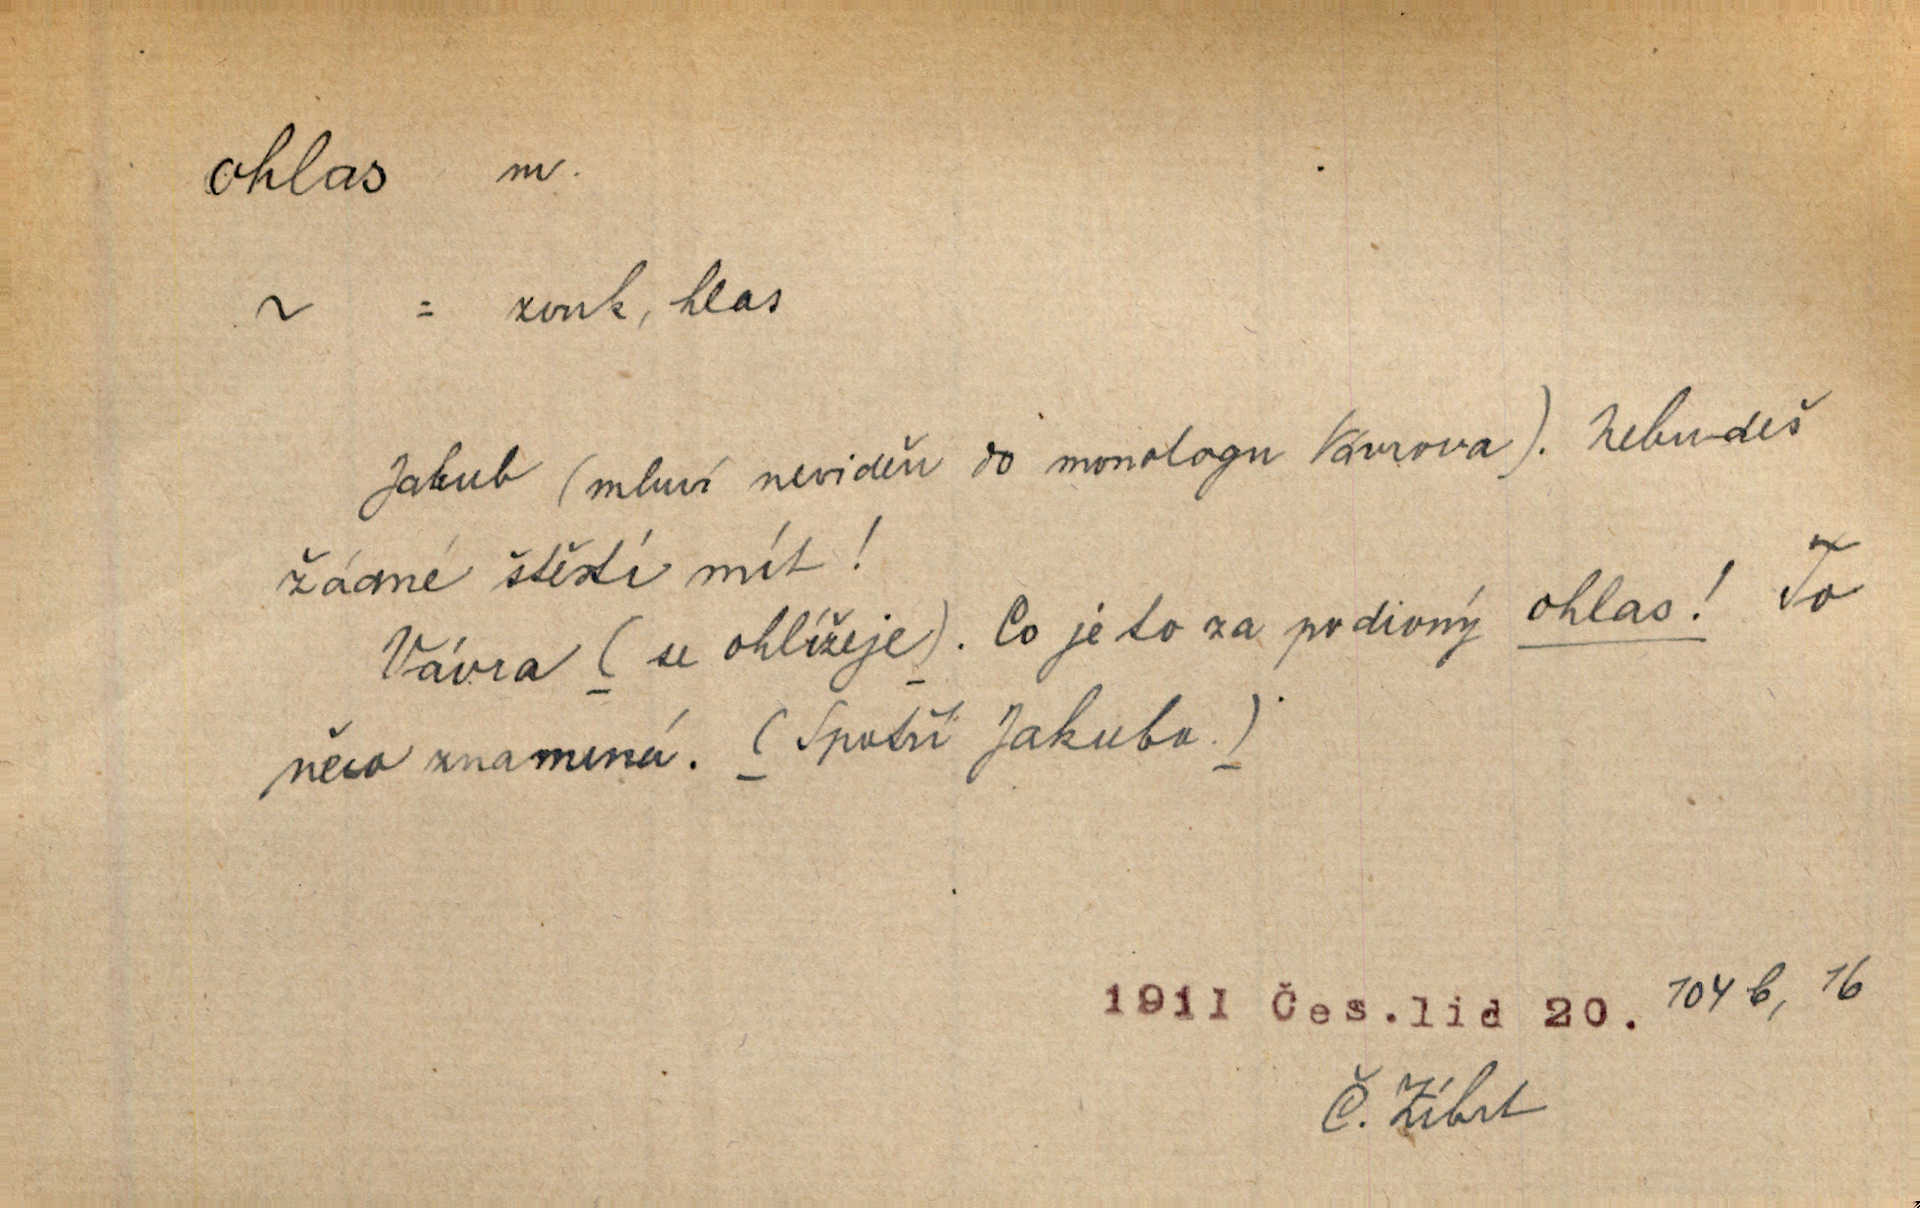 ohlas m.
~ = zvuk, hlas
Jakub (mluví neviděn do monologu Vávrova). Nebudeš
žádné štěstí mít!
Vávra (se ohlížeje). Co je to za podivný ohlas! To
něco znamená. (Spatří Jakuba.)
1911 Čes.lid 20. 104 b, 16
Č. Zíbrt